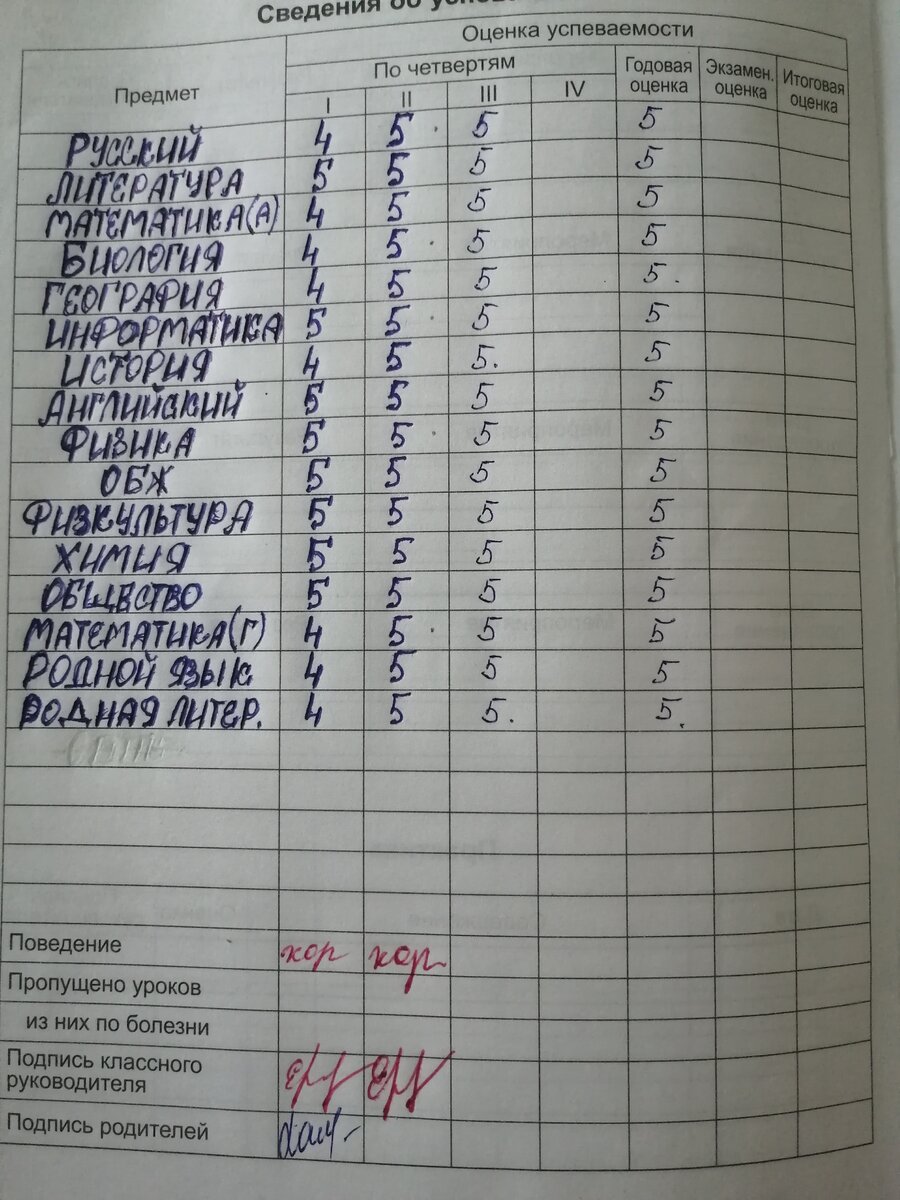 Сведения об
Оценка успеваемости
Предмет По четвертям Годовая оценка Экзамен. оценка Итоговая оценка
I II III IV
РУССКИЙ 4 5 5 5
ЛИТЕРАТУРА 5 5 5 5
МАТЕМАТИКА(А) 4 5 5 5
БИОЛОГИЯ 4 5 5 5
ГЕОГРАФИЯ 4 5 5 5.
ИНФОРМАТИКА 5 5 5 5
ИСТОРИЯ 4 5 5. 5
АНГЛИЙСКИЙ 5 5 5 5
ФИЗИКА 5 5 5 5
ОБЖ 5 5 5 5
ФИЗКУЛЬТУРА 5 5 5 5
ХИМИЯ 5 5 5 5
ОБЩЕСТВО 5 5 5 5
МАТЕМАТИКА(Г) 4 5 5 5
РОДНОЙ ЯЗЫК 4 5 5 5
РОДНАЯ ЛИТЕР. 4 5 5. 5.
Поведение хор хор
Пропущено уроков
из них по болезни
Подпись классного
руководителя
Подпись родителей